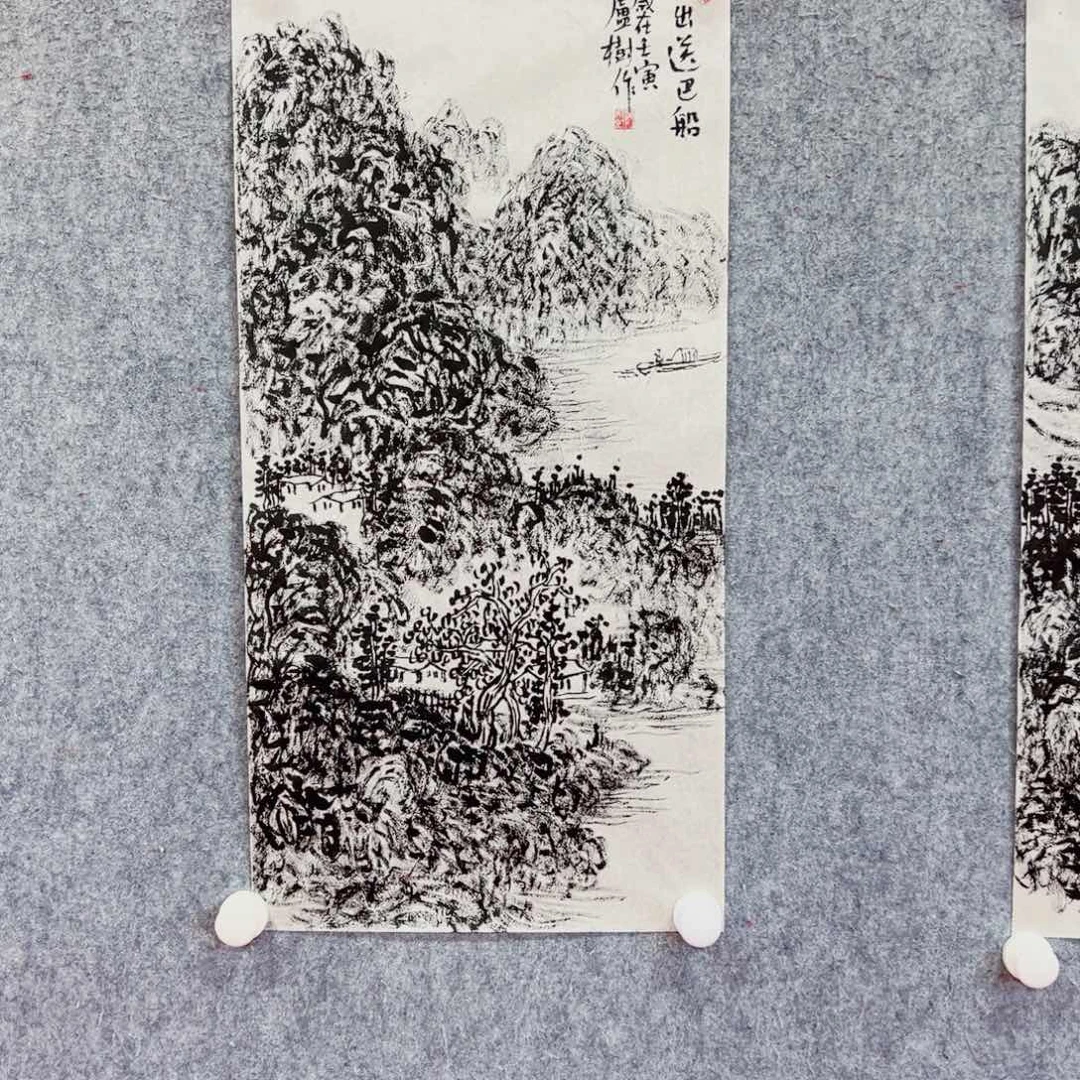 出送巴船
歲在壬寅
盧樹作